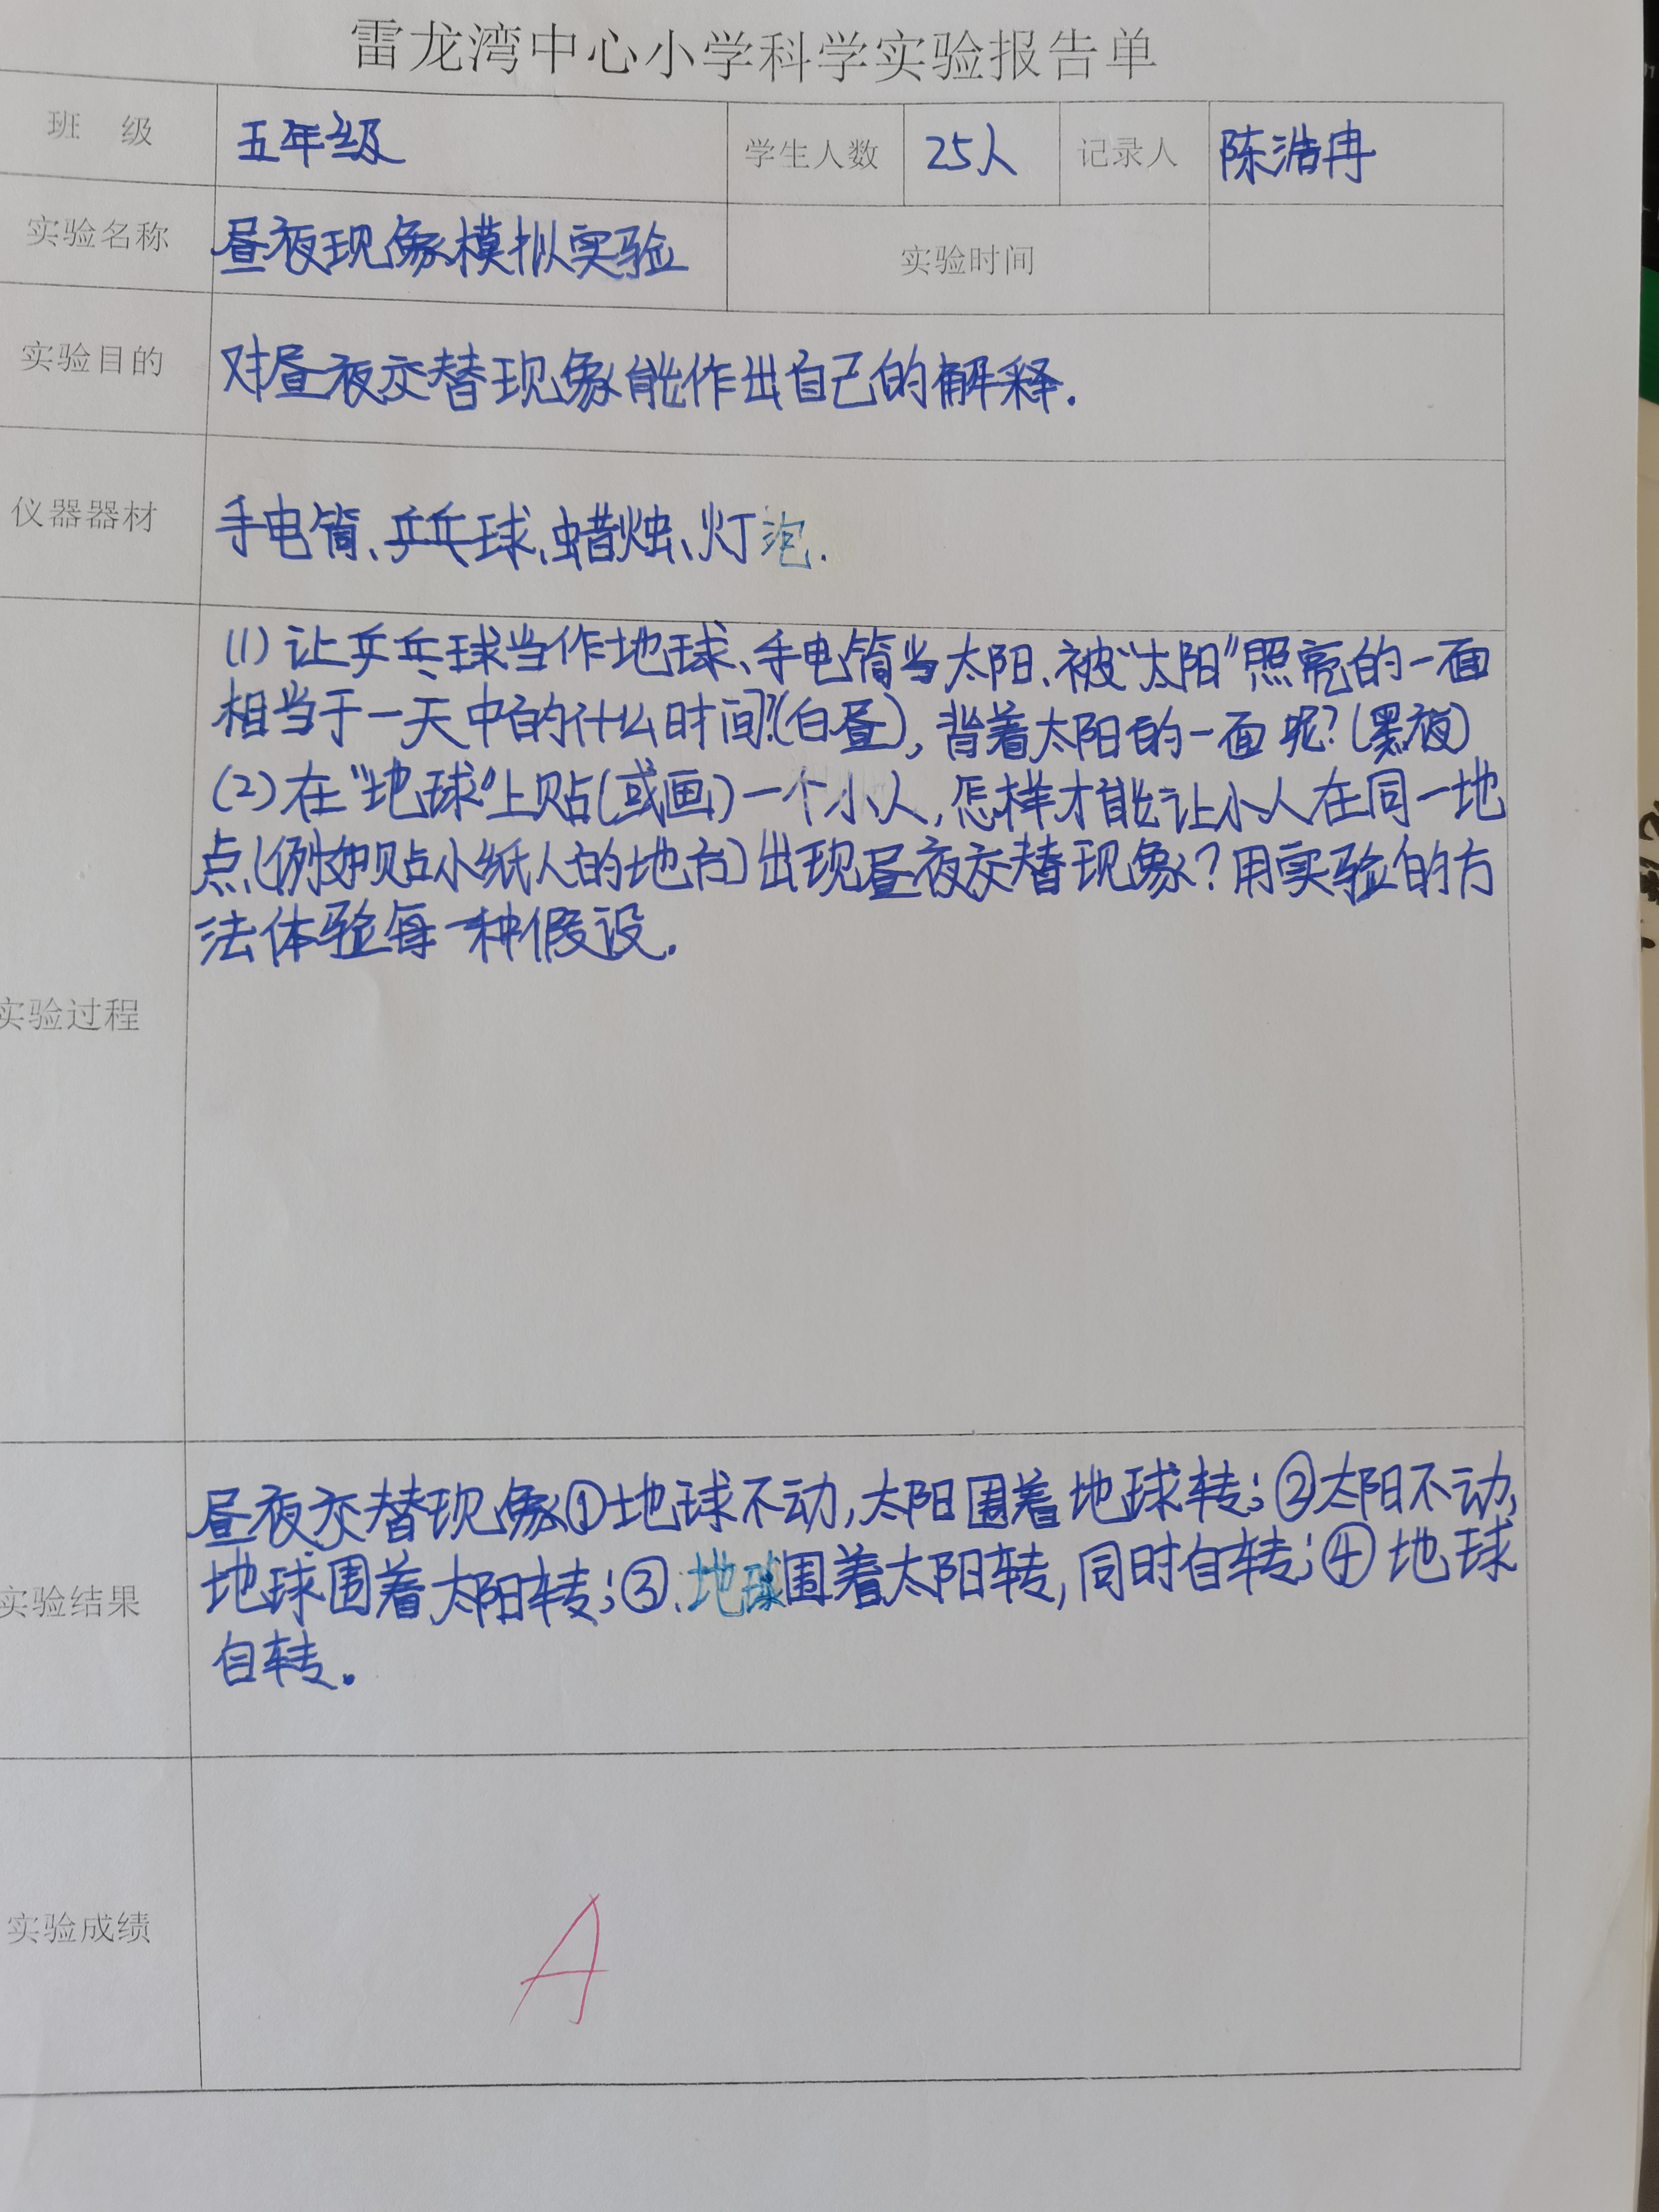 雷龙湾中心小学科学实验报告单
班 级 五年级 学生人数 25人 记录人 陈浩冉
实验名称 昼夜现象模拟实验 实验时间
实验目的 对昼夜交替现象能作出自己的解释.
仪器器材 手电筒、乒乓球、蜡烛、灯泡.
实验过程
(1)让乒乓球当作地球、手电筒当太阳、被“太阳”照亮的一面
相当于一天中的什么时间?(白昼),背着太阳的一面呢?(黑夜)
(2)在“地球”上贴(或画)一个小人,怎样才能让小人在同一地
点(例如贴小纸人的地方)出现昼夜交替现象?用实验的方
法体验每一种假设.
实验结果
昼夜交替现象①地球不动,太阳围着地球转;②太阳不动,
地球围着太阳转;③.地球围着太阳转,同时自转;④地球
自转。
实验成绩 A